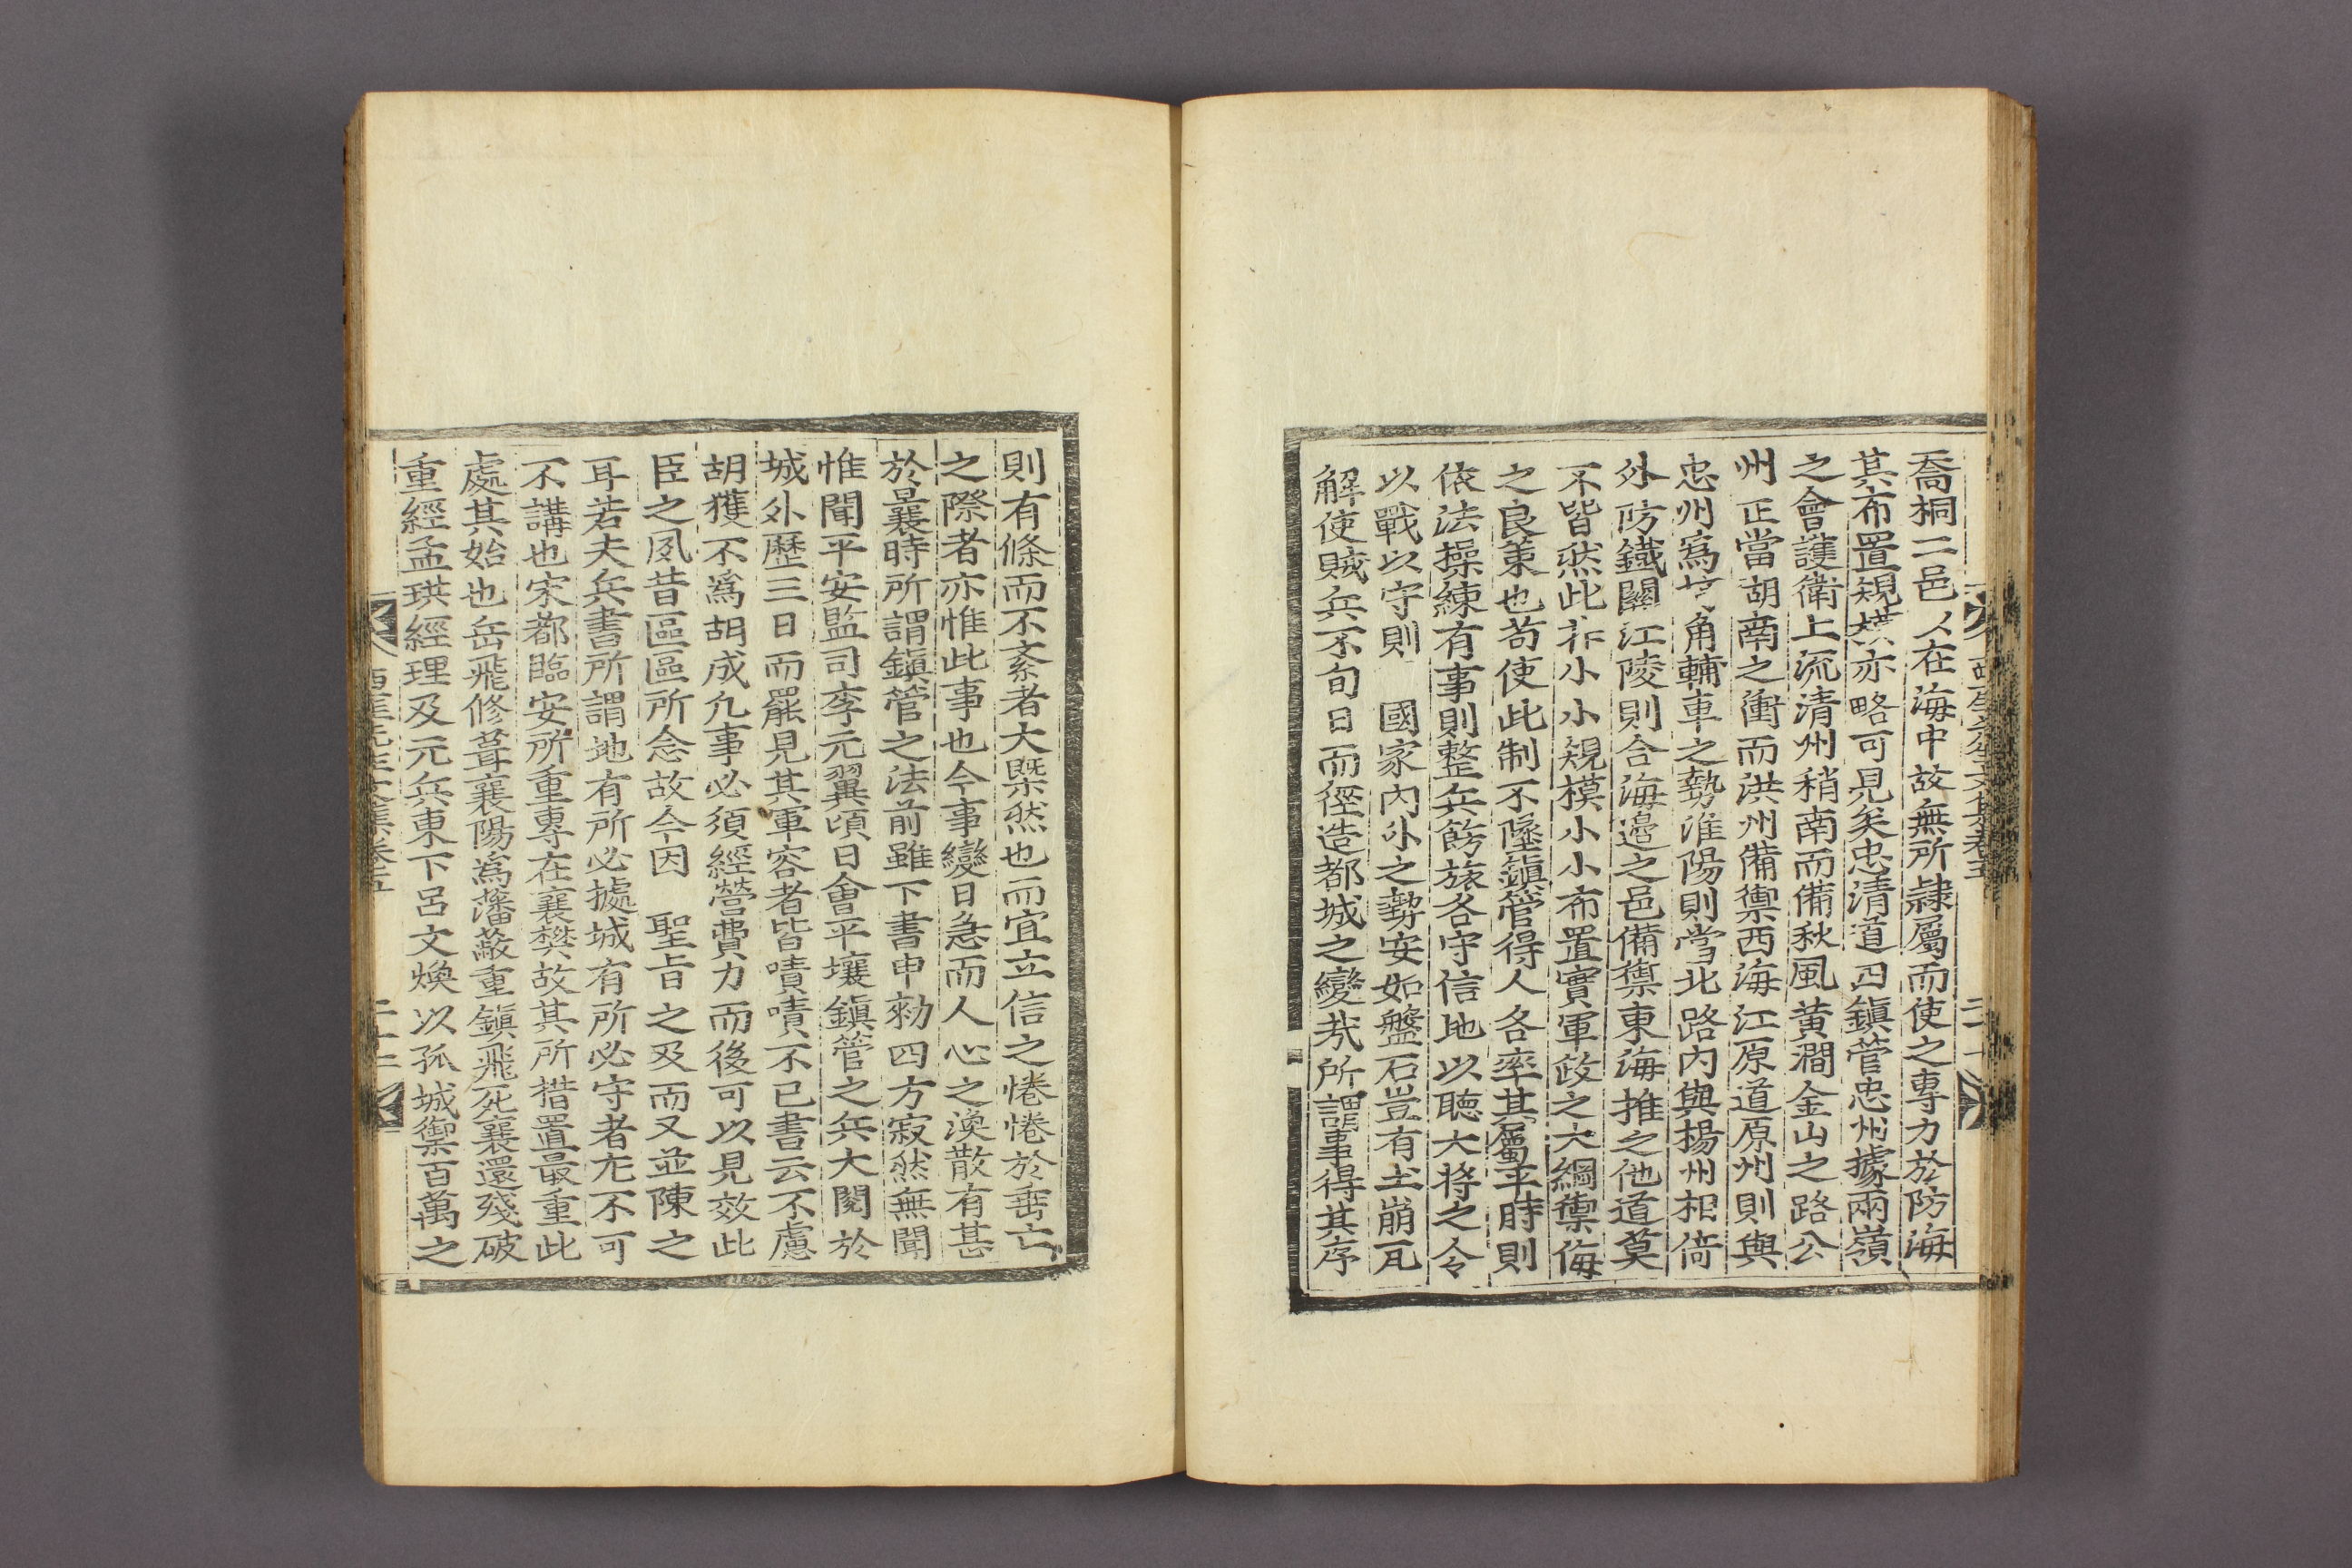 喬桐二邑人在海中故無所隷屬而使之專力於防海
其布置規橅亦略可見矣忠清道四鎭管忠州據兩嶺
之會護衛上流清州稍南而備秋風黄澗金山之路公
州正當胡南之衝而洪州備禦西海江原道原州則與
忠州爲角輔車之勢淮陽則當北路内與楊州相倚
外防鐵關江陵則合海邉之邑備禦東海推之他道莫
不皆然此小小規模小小布置實軍政之大綱禦侮
之良策也苟使此制不隳鎭管得人各率其屬平時則
依法操練有事則整兵飭旅各守信地以聽大將之令
以戰以守則 國家内外之勢安如盤石豈有土崩瓦
解使賊兵不旬日而徑造都城之變㢤所謂事得其序
則有條而不紊者大槩然也而宜立信之惓惓於垂亡
之際者亦惟此事也今事變日急而人心之渙散有甚
於曩時所謂鎭管之法前雖下書申勑四方寂然無聞
惟聞平安監司李元翼頃日會平壤鎭管之兵大閱於
城外歷三日而罷見其軍容者皆嘖嘖不已書云不慮
胡獲不爲胡成凡事必須經營費力而後可以見效此
臣之夙昔區區所念故今因 聖旨之及而又並陳之
耳若夫兵書所謂地有所必據城有所必守者尤不可
不講也宋都臨安所重專在襄樊故其所措置最重此
處其始也岳飛修葺襄陽爲藩蔽重鎭飛死襄還殘破
重經孟珙經理及元兵東下呂文煥以孤城禦百萬之
西厓先生文集卷五 二十二